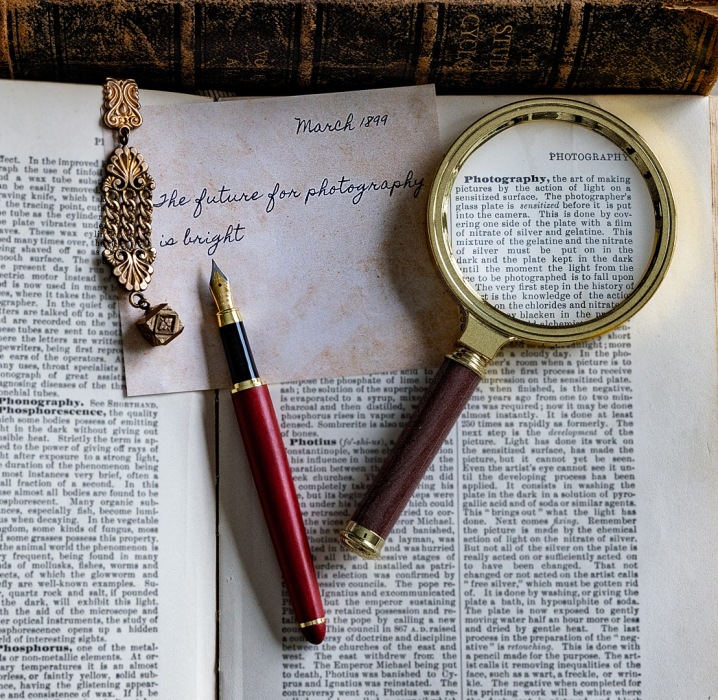 CYC
March 1899
The future for photography
is bright
PHOTOGRAPHY
Photography, the art of making
pictures by the action of light on a
sensitized surface. The photographer's
glass plate is sensitized before it is put
into the camera. This is done by cov-
ering one side of the plate with a film
of nitrate of silver and gelatine. This
mixture of the gelatine and the nitrate
of silver must be put on in the
dark and the plate kept in the dark
until the moment the light from the
to be photographed is to fall upon
The very first step in the history of
is the knowledge of the action
on the chlorides and nitrates
blacken in the
alchemist
short
light; more
on a cloudy day. In the pho-
rapher's room when a picture is to
the first process is to receive
impression on the sensitized plate.
when finished, is the negative.
years ago from one to two min-
utes was required; now it may be done
almost instantly. It is done at least
250 times as rapidly as formerly. The
next step is the development of the
picture. Light has done its work on
the sensitized surface, has made the
picture, but it cannot yet be seen.
Even the artist's eye cannot see it un-
til the developing process has been
applied. It consists in washing the
plate in the dark in a solution of pyro-
gallic acid and of soda or similar agents.
This "brings out" what the light has
done. Next comes fixing. Remember
the picture is made by the chemical
action of light on the nitrate of silver.
But not all of the silver on the plate is
really acted on or sufficiently acted on
to have been changed. That not
changed or not acted on the artist calls
"free silver," which must be gotten rid
of. It is done by washing, or giving the
plate a bath, in hyposulphite of soda.
The plate is now exposed to gently
moving water half an hour more or less
and dried by gentle heat. The last
process in the preparation of the "neg-
ative" is retouching. This is done with
a pencil made for the purpose. The art-
ist calls it removing inequalities of the
face, such as a wart, a freckle, or wrin-
kle. The negative when completed for
its printing work will be white where
fect. In the improved
raph the use of tinfoil
a wax tube
be easily removed
raving knife, which cut
the tracing point, cut
tube as the cylinder
plate vibrates under
aves. These wax cyl-
many times over, the
being shaved off so as
smooth surface. The
present day is run
electric motor instead of
is now used in many
es, where it takes the place
grapher. In the quiet of
tters are talked off to a pho-
are recorded on the
tubes are sent to another
where the letters are written
pewriters, being first repro-
ears of the operators. Among
any uses, throat specialists
monograph of great assist-
agnosing diseases of the throat
onchial tubes.
Phonography. See SHORTHAND.
Phosphorescence, the quality
which some bodies possess of emitting
light in the dark without giving out
sensible heat. Strictly the term is ap-
plied to the power of giving off rays of
light after exposure to a strong light,
the duration of the phenomenon being
most instances very brief, often a
small fraction of a second. In this
sense almost all bodies are found to be
phosphorescent. Many organic sub-
stances, especially fish, become lumi-
ous when decaying. In the vegetable
kingdom, some kinds of fungus, most
some grasses possess this property.
the animal world the phenomenon is
frequent, being found in many
kinds of mollusks, fishes, worms and
insects, of which the glowworm and
firefly are well-known examples. Su-
quartz rocks and salt, if pounded
the dark, will exhibit this light.
with the aid of the microscope and
other optical instruments, the study of
phosphorescence opens up a hidden
of interesting sights.
Phosphorus, one of the metal-
or non-metallic elements. At or-
dinary temperatures it is an almost
colorless, or faintly yellow, solid sub-
stance, having the glistening appear-
ance and consistence of wax. It
compose the phosphate of lime in
ash; the solution of the superphosphate
is evaporated to a syrup, mixed
charcoal and then distilled,
phosphorus rises in vapor and
densed. Sombrerite is also
of bones.
Photius (fo'-shi-us),
Constantinople, whose
an influence in bringing
separation between the
Greek churches.
completely
his, but its
was under his
to be retraced
the vices
This
he was banished,
Photius, a layman, was
and was hurried
all the successive stages of
orders, and installed as patri-
His election was confirmed by
successive councils. The pope re-
Ignatius and excommunicated
but the emperor sustaining
he retained possession and re-
the pope by calling a new
council. This council in 867 A. D. raised
a controversy of doctrine and discipline
between the churches of the east and
west. The east withdrew from the
west. The Emperor Michael being put
to death, Photius was banished to Cy-
prus and Ignatius was reinstated. The
controversy went on, Photius was re-